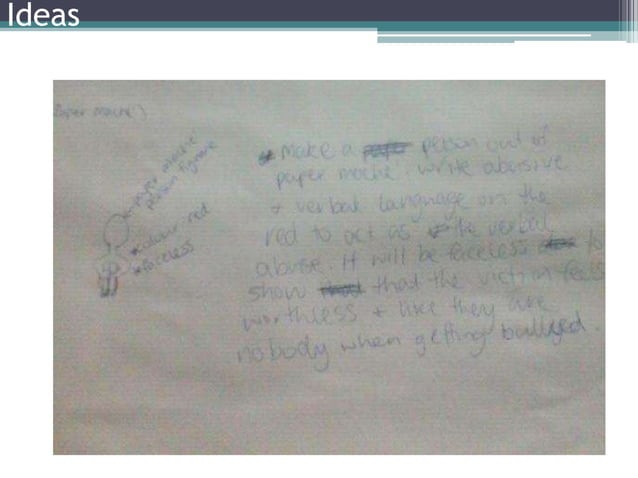 Ideas
Paper mache)
paper mache
person figure
colour red
faceless
* Make a person out of
paper mache. write abusive
+ verbal language on the
red to act as the verbal
abuse. It will be faceless to
show that the victim feels
worthless + like they are
nobody when getting bullyed.